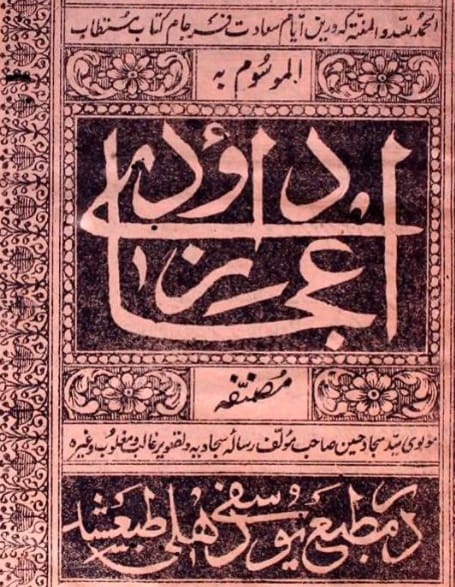 الحمد للہ والمنۃ کہ دریں ایام سعادت فرجام کتاب مستطاب
الموسوم بہ
اعجاز داؤدی
مصنّفہ
مولوی سید سجاد حسین صاحب مؤلف رسالہ سجادیہ غالب و مغلوب وغیرہ
در مطبع یوسفی دہلی طبع شد